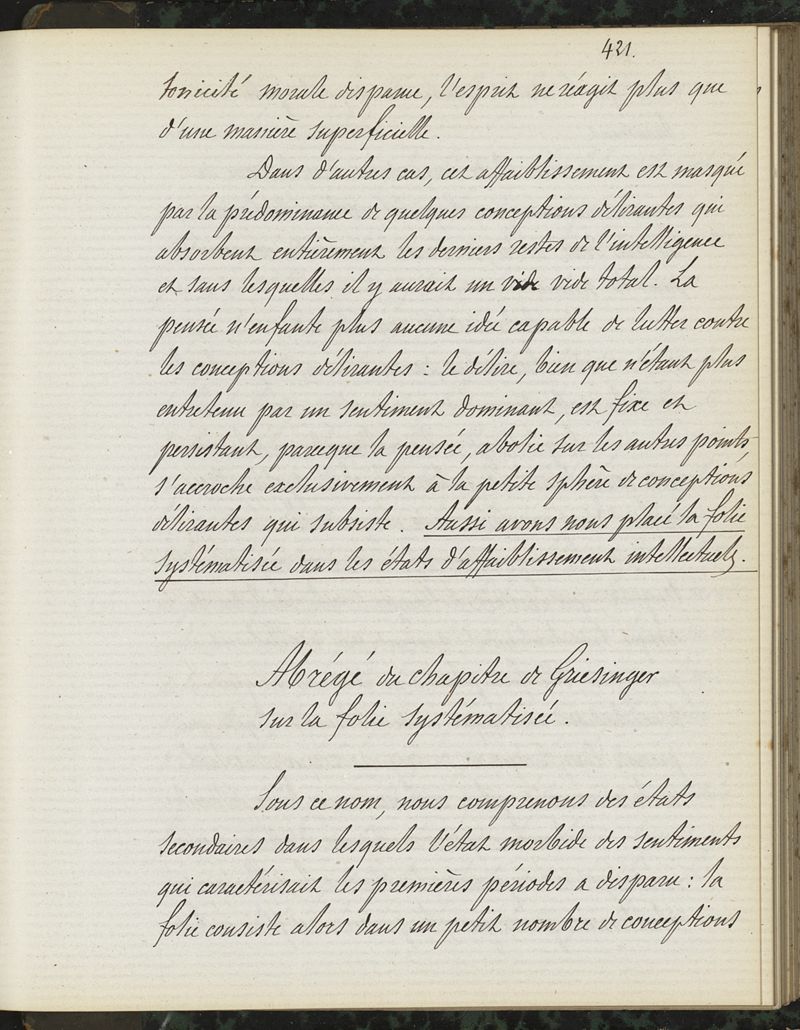 421.
tonicité morale disparue, l'esprit ne réagit plus que
d'une manière superficielle.
Dans d'autres cas, cet affaiblissement est masqué
par la prédominance de quelques conceptions délirantes qui
absorbent entièrement les derniers restes de l'intelligence
et sans lesquelles il y aurait un vide vide total. La
pensée n'enfante plus aucune idée capable de lutter contre
les conceptions délirantes : le délire, bien que n'étant plus
entretenu par un sentiment dominant, est fixe et
persistant, parceque la pensée, abolie sur les autres points,
s'accroche exclusivement à la petite sphère de conceptions
délirantes qui subsiste. Aussi avons nous placé la folie
systématisée dans les états d'affaiblissement intellectuels.
Abrégé du chapitre de Griesinger
sur la folie systématisée.
Sous ce nom, nous comprenons des états
secondaires dans lesquels l'état morbide des sentiments
qui caractérisait les premières périodes a disparu : la
folie consiste alors dans un petit nombre de conceptions